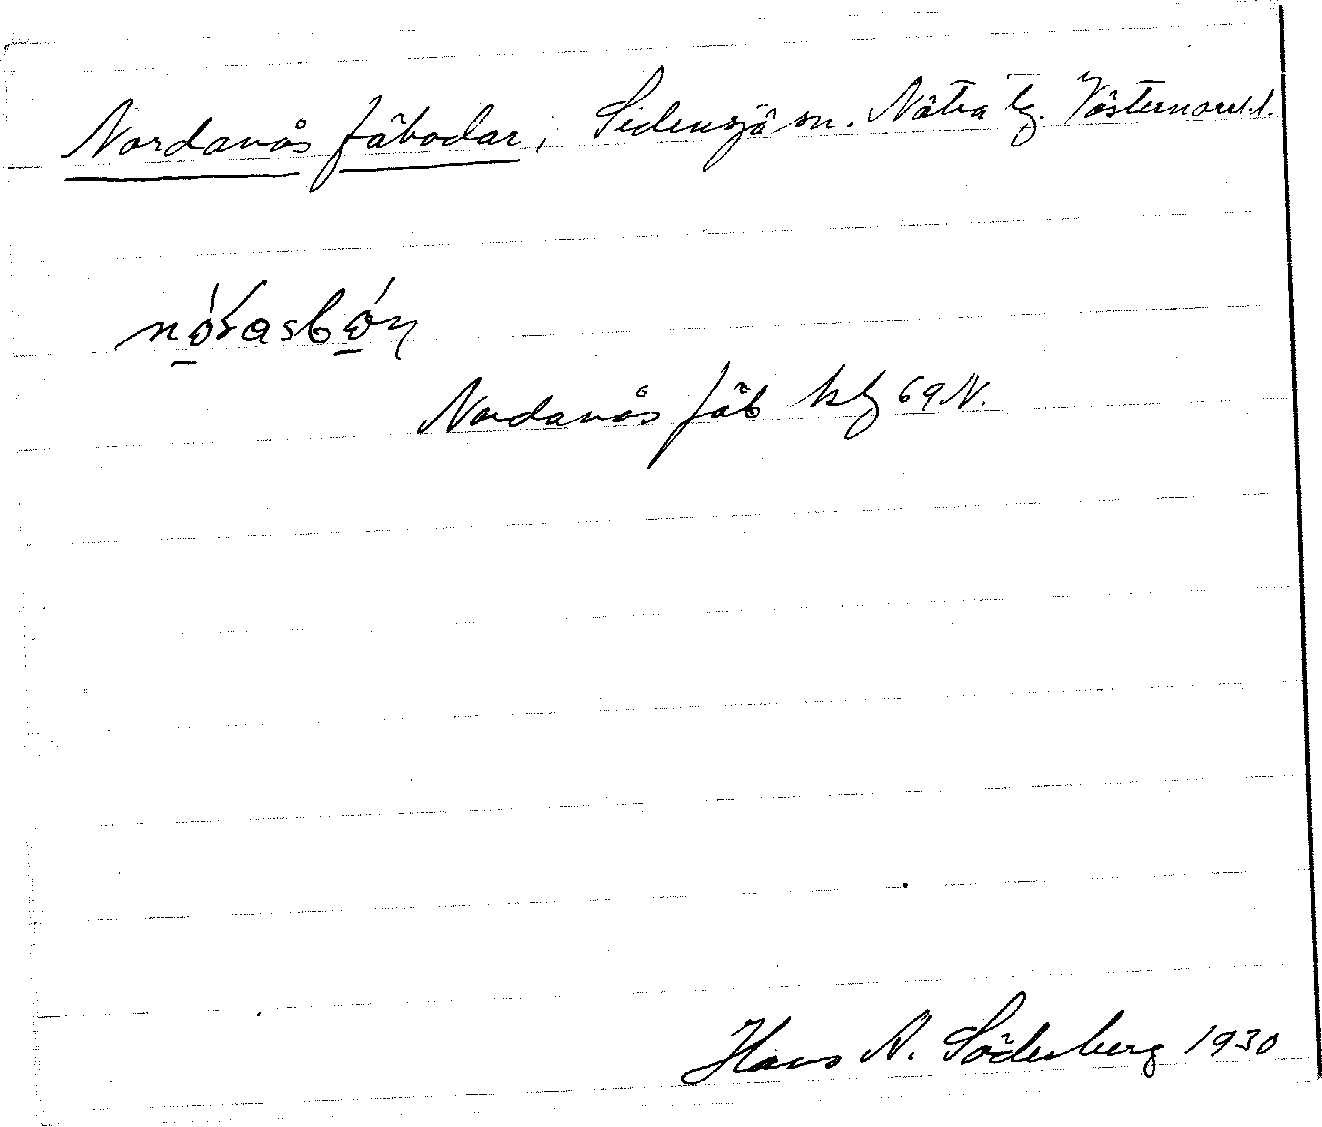 Nordanås fäbodar, Sidensjö sn. Nätra tg. Västernorrl.l.
Nordanås fäb kbl 69 N.
Hans N. Söderberg 1930